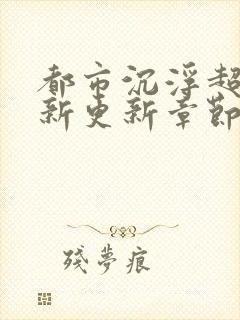 都市沉浮超
新更新章節
殘夢痕